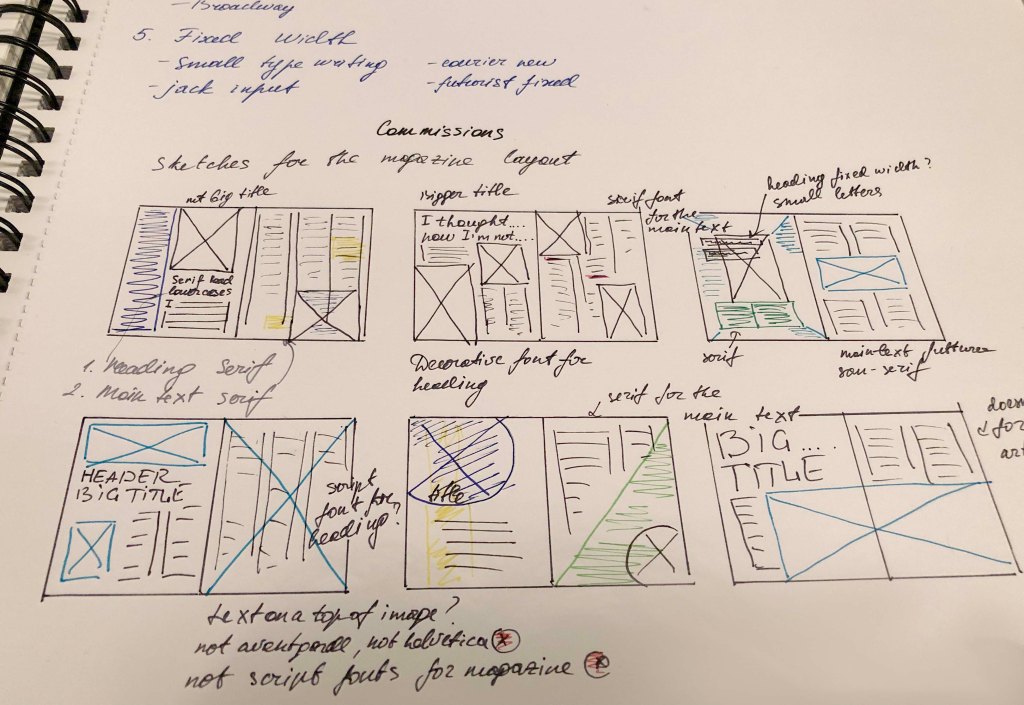 - Broadway
5. Fixed width
- small type writing
- courier new
- jack input
- futurist fixed
Commissions
sketches for the magazine layout
not big title
Serif head
lowercases
I
1. heading serif
2. main text serif
Bigger title
I thought....
now I'm not....
Decorative font for
heading
serif font
for the
main text
heading fixed width?
small letters
serif
main text
san-serif
HEADER
BIG TITLE
script
font for
heading?
title
serif for the
main text
BIG....
TITLE
for
text on a top of image?
not avantgarde, not helvetica x
not script fonts for magazine x